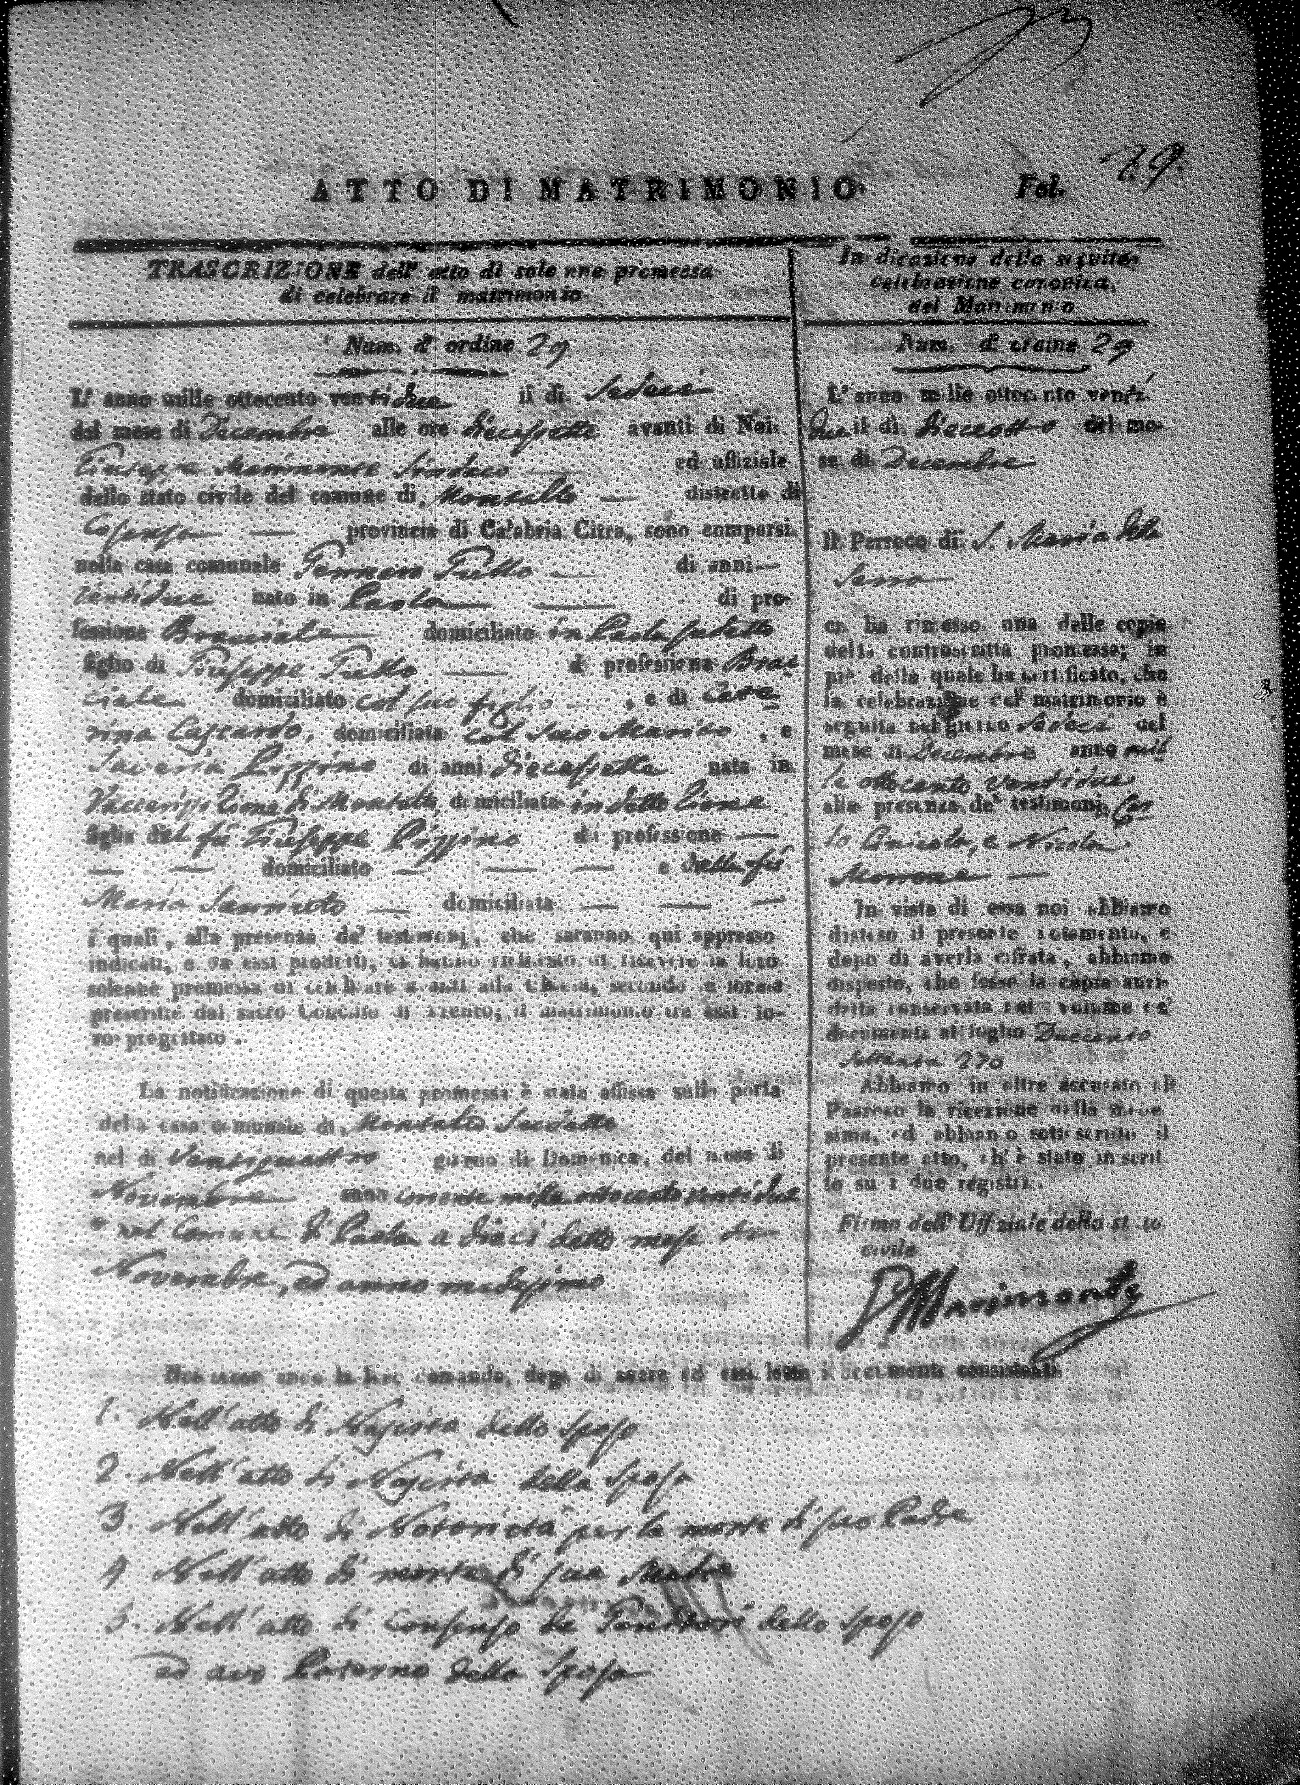 29.
ATTO DI MATRIMONIO Fol.
TRASCRIZIONE dell' atto di solenne promessa
di celebrare il matrimonio
Num. d' ordine 29
L' anno mille ottocento ventidue il di Sedeci
del mese di Decembre alle ore diecessette avanti di Noi
Giuseppe Marimonte Sindaco ed uffiziale
dello stato civile del comune di Montalto distretto di
Cosenza provincia di Calabria Citra, sono comparsi
nella casa comunale Gennaro Tutto di anni
ventidue nato in Paola di pro-
fessione Bracciale domiciliato in Paola sudetto
figlio di Giuseppe Tutto di professione Brac
ciale domiciliato col suo figlio , e di
domiciliata col suo Marito , e
di anni diecessette nata in
di Montalto domiciliata in detto
figlia del fù Giuseppe di professione
domiciliato e della fù
Maria domiciliata
i quali, alla presenza de' testimonj, che saranno qui appresso
indicati, e da essi prodotti, ci hanno richiesto di ricevere la loro
solenne promessa di celebrare avanti alla Chiesa, secondo le forme
prescritte dal sacro Concilio di Trento, il matrimonio tra essi lo-
ro progettato.
La notificazione di questa promessa è stata affissa sulla porta
della casa comunale di Montalto Sudetto
nel di Ventiquattro giorno di Domenica, del mese di
Novembre anno corrente mille ottocento ventidue
e nel Comune di Paola a dieci detto mese di
Novembre, ed anno medesimo
In dicazione della seguita
celebrazione canonica
del Matrimonio
Num. d' ordine 29
L' anno mille ottocento venti
due il di dieceotto del me-
se di Decembre
Il Parroco di S. Maria della
Serra
ci ha rimesso una delle copie
della controscritta promessa; in
piè della quale ha certificato, che
la celebrazione del matrimonio è
seguita nel giorno sedeci del
mese di Decembre anno mil
le ottocento ventidue
alla presenza de' testimonj Car
lo e Nicola
Morrone
In vista di essa noi abbiamo
disteso il presente notamento, e
dopo di averla cifrata, abbiamo
disposto, che fosse la copia anzi-
detta conservata nel volume de'
documenti al foglio Duecento
settanta 270
Abbiamo in oltre accusato al
Parroco la ricezione della mede
sima, ed abbiamo sottoscritto il
presente atto, ch' è stato inscrit
to su i due registri.
Firma dell' Uffiziale dello stato
civile
Marimonte
di essere ed documenti consistenti
1. Nell' atto di Nascita dello sposo
2. Nell' atto di Nascita della sposa
3. Nell' atto di Notorietà per la morte di suo Padre
4 Nell' atto di morte di sua Madre
5. Nell' atto di Consenso de' Genitori dello sposo
ed avo Paterno della Sposa